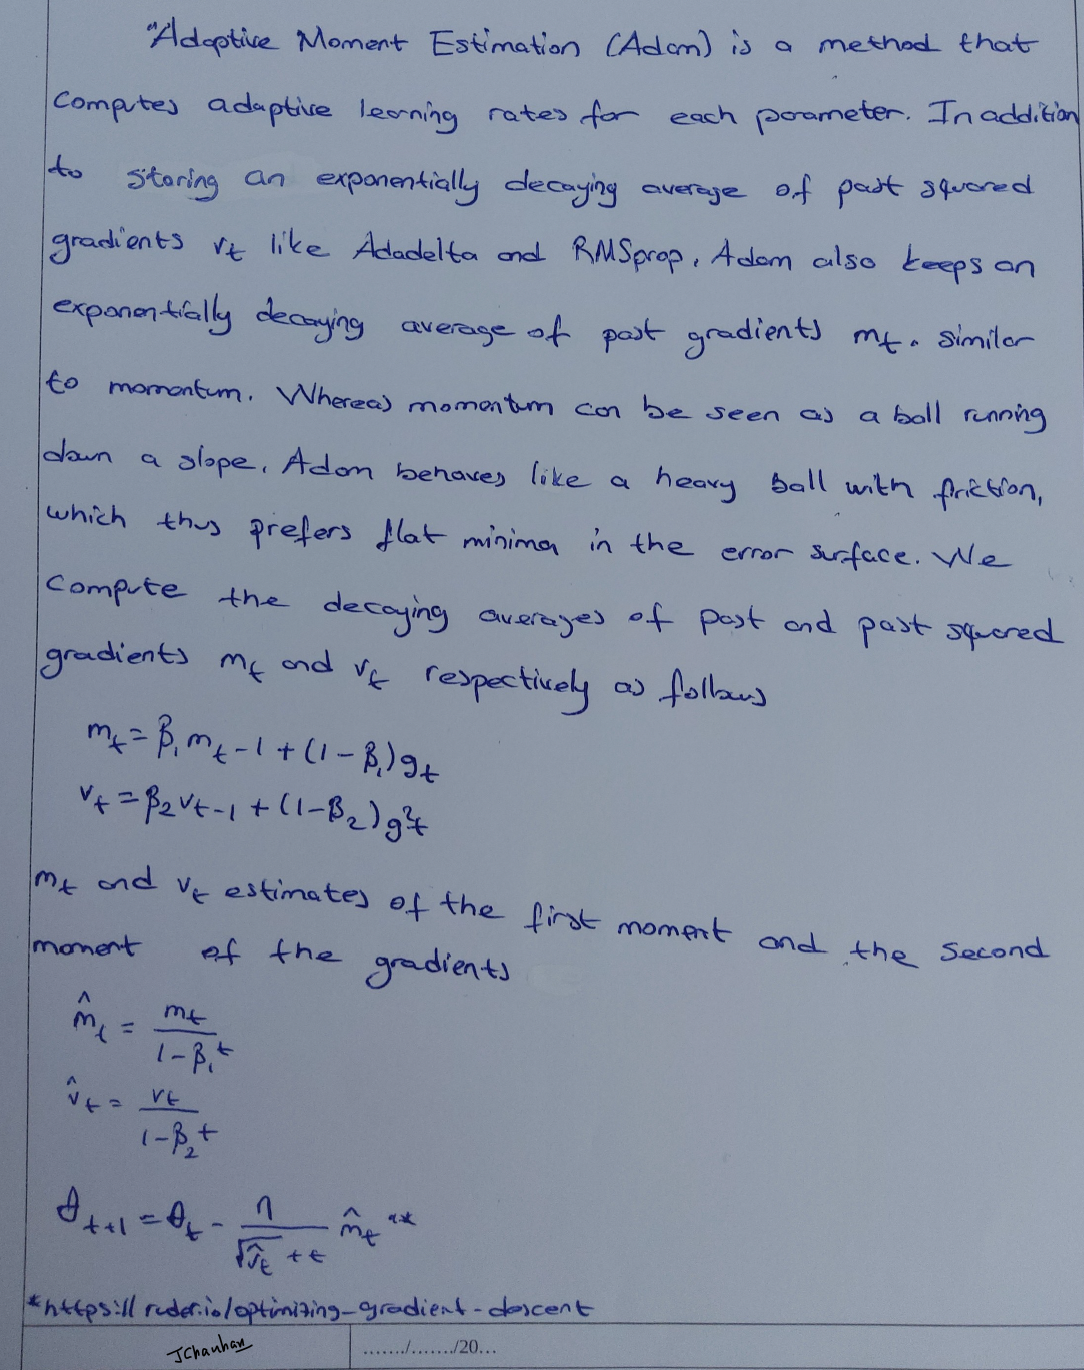 "Adaptive Moment Estimation (Adam) is a method that
computes adaptive learning rates for each parameter. In addition
to storing an exponentially decaying average of past squared
gradients vt like Adadelta and RMSprop, Adam also keeps an
exponentially decaying average of past gradients mt. similar
to momentum. Whereas momentum can be seen as a ball running
down a slope, Adam behaves like a heavy ball with friction,
which thus prefers flat minima in the error surface. We
compute the decaying averages of past and past squared
gradients mt and vt respectively as follows
mt = β₁mt-1 + (1-β₁)gt
vt = β₂vt-1 + (1-β₂)g²t
mt and vt estimates of the first moment and the second
moment of the gradients
m̂t = mt / 1-β₁^t
v̂t = vt / 1-β₂^t
θt+1 = θt - η / √v̂t + ε m̂t "*
*https://ruder.io/optimizing-gradient-descent
JChauhan ......./......./20...